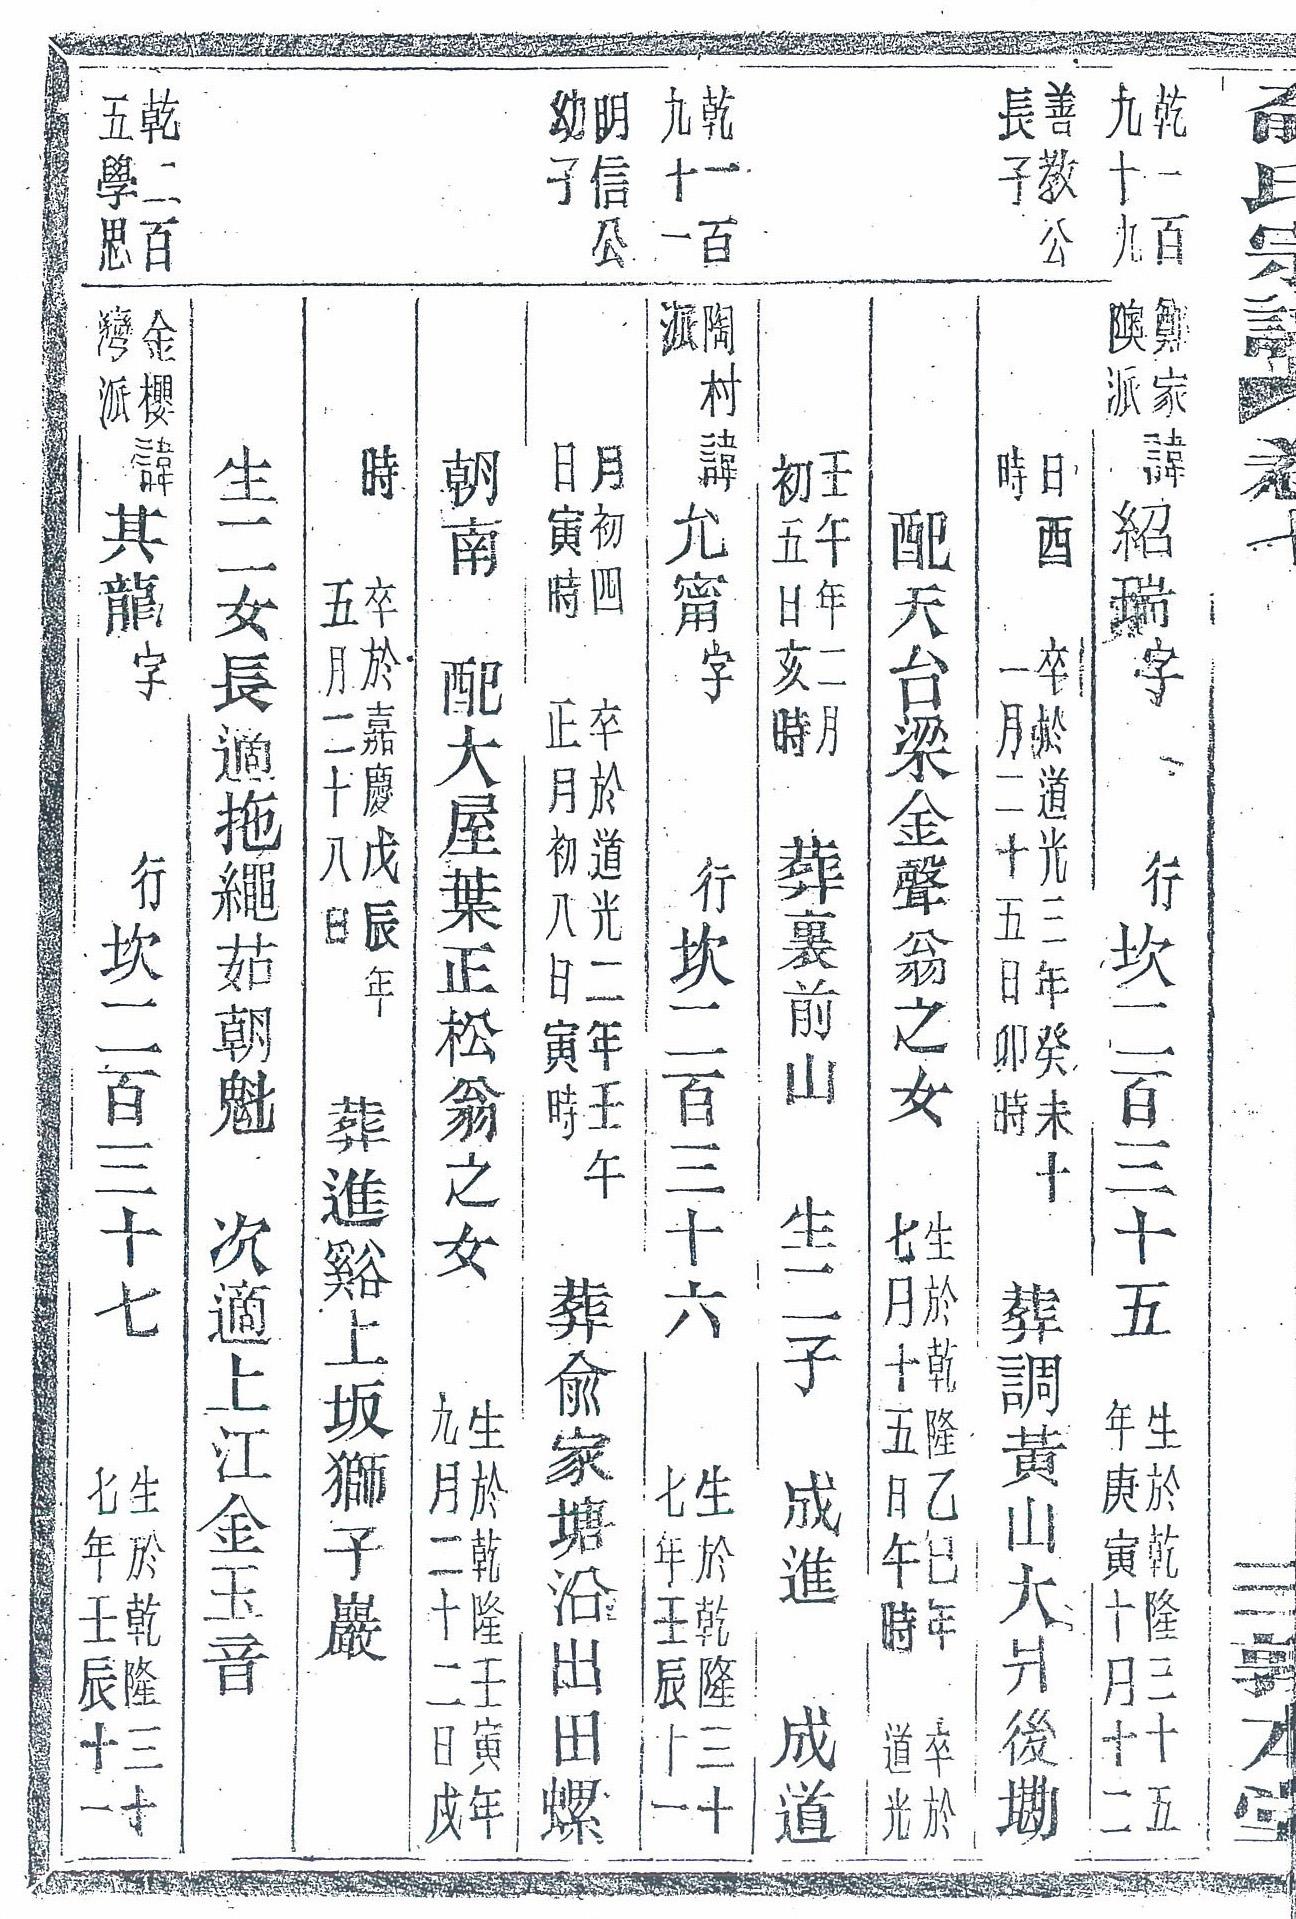 氏宗譜 卷十
乾一百
九十九
鄭家
陝派
諱
紹瑞字
行
坎二百三十五
生於乾隆三十五
年庚寅十月十二
善教公
長子
日酉
時
卒於道光三年癸未十
一月二十五日卯時
葬調黃山大爿後塝
配天台梁金聲翁之女
生於乾隆乙巳年
七月十五日午時
卒於
道光
壬午年二月
初五日亥時
葬裏前山 生二子 成進 成道
乾一百
九十一
陶村
派
諱
允甯字
行
坎二百三十六
生於乾隆三十
七年壬辰十一
明信公
幼子
月初四
日寅時
卒於道光二年壬午
正月初八日寅時
葬俞家塘沿出田螺
朝南 配大屋葉正松翁之女
生於乾隆壬寅年
九月二十二日戌
時
卒於嘉慶戊辰年
五月二十八日
葬進谿上坂獅子巖
生二女長適拖繩茹朝魁 次適上江金玉音
乾二百
五學思
金櫻
灣派
諱
其龍字
行
坎二百三十七
生於乾隆三十
七年壬辰十一